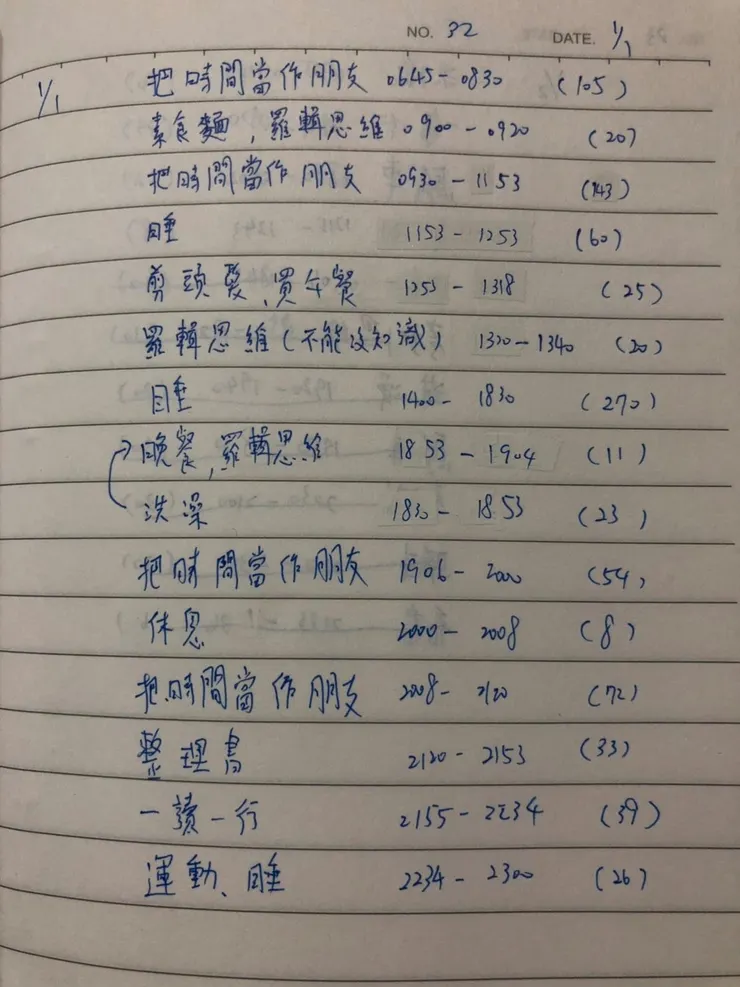 NO. 32 DATE. 1/1
1/1 把時間當作朋友 0645-0830 (105)
素食麵,羅輯思維 0900-0920 (20)
把時間當作朋友 0930-1153 (143)
睡 1153-1253 (60)
剪頭髮,買午餐 1253-1318 (25)
羅輯思維(不能没知識) 1320-1340 (20)
睡 1400-1830 (270)
晚餐,羅輯思維 1853-1904 (11)
洗澡 1830-1853 (23)
把時間當作朋友 1906-2000 (54)
休息 2000-2008 (8)
把時間當作朋友 2008-2120 (72)
整理書 2120-2153 (33)
一讀一行 2155-2234 (39)
運動、睡 2234-2300 (26)